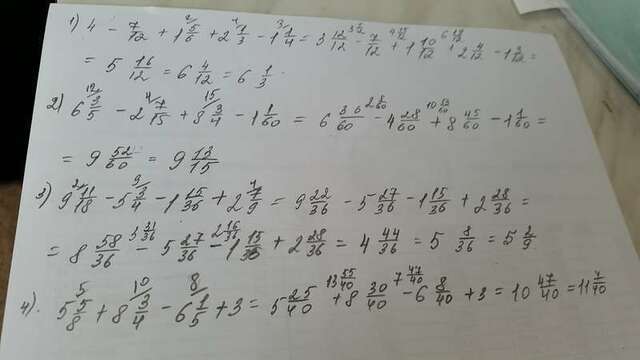 1) 4 - 7/12 + 1 5/6 + 2 1/3 - 1 1/4 = 3 12/12 - 7/12 + 1 10/12 + 2 4/12 - 1 3/12 =
= 5 16/12 = 6 4/12 = 6 1/3.
2) 6 3/5 - 2 7/15 + 8 3/4 - 1 1/60 = 6 36/60 - 4 28/60 + 8 45/60 - 1 1/60 =
= 9 52/60 = 9 13/15
3) 9 11/18 - 5 3/4 - 1 15/36 + 2 7/9 = 9 22/36 - 5 27/36 - 1 15/36 + 2 28/36 =
= 8 58/36 - 5 27/36 - 1 15/36 + 2 28/36 = 4 44/36 = 5 8/36 = 5 2/9
4). 5 5/8 + 8 3/4 - 6 1/5 + 3 = 5 25/40 + 8 30/40 - 6 8/40 + 3 = 10 47/40 = 11 7/40